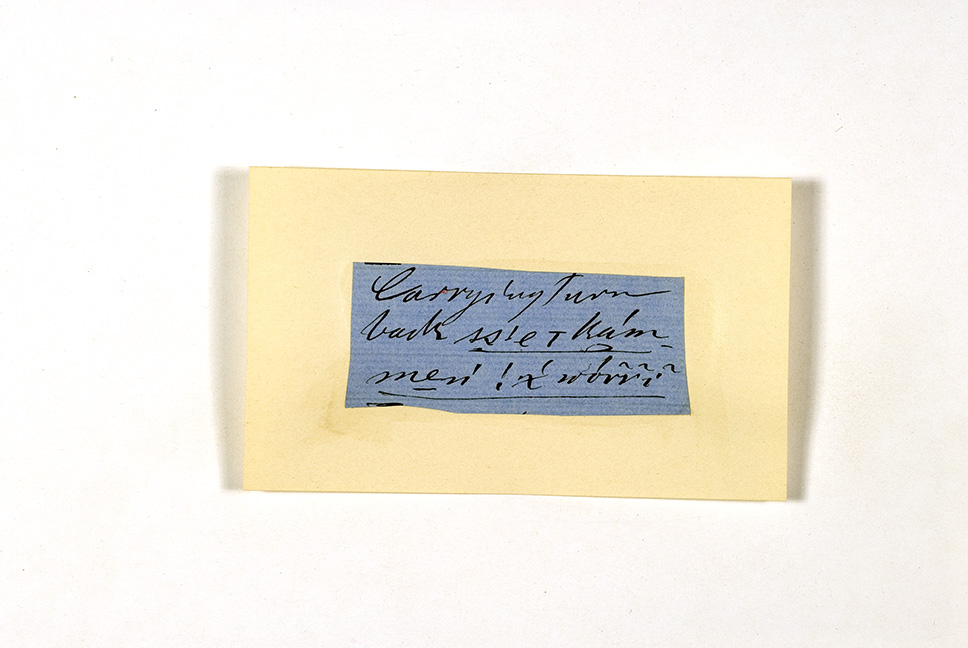 Carrying turn
back ss'e τ kám-
men' ! χ́ wór̃r̃ı̃